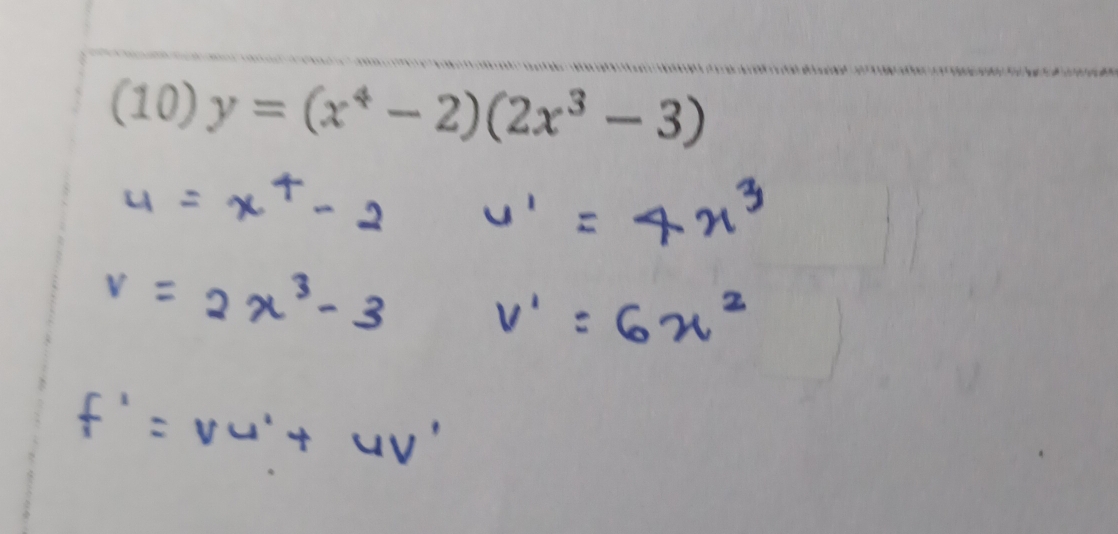 (10) y = (x⁴ − 2)(2x³ − 3)
u = x⁴ - 2 u' = 4x³
v = 2x³ - 3 v' = 6x²
f' = vu' + uv'